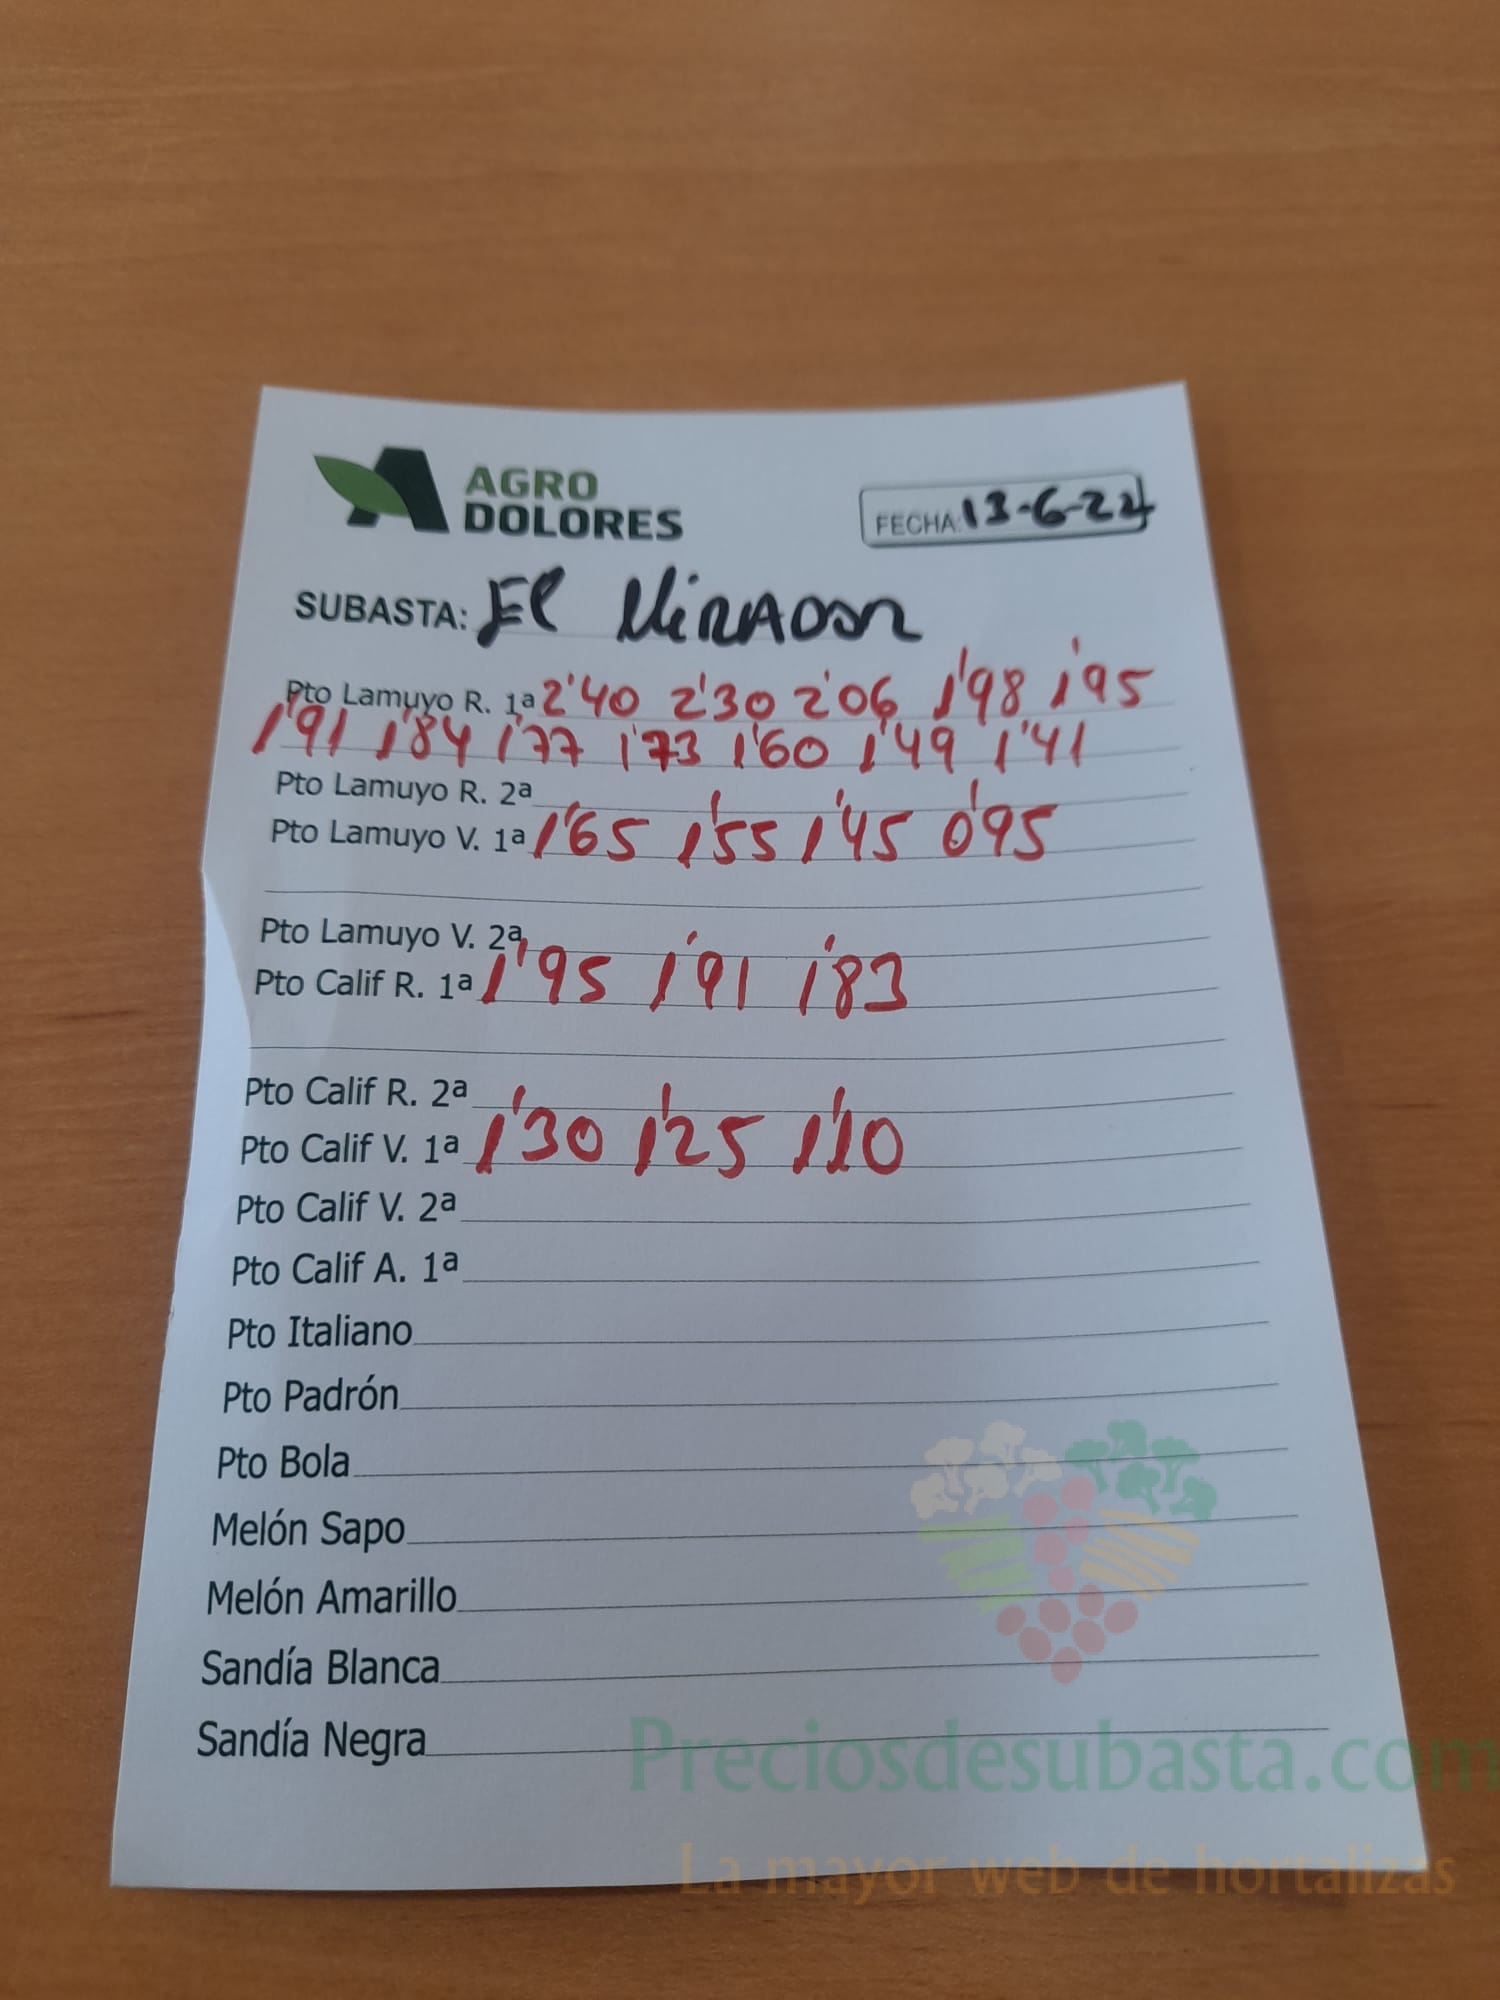 AGRO
DOLORES
FECHA: 13-6-24
SUBASTA: El MiRADOR
Pto Lamuyo R. 1ª 2'40 2'30 2'06 1'98 1'95
1'91 1'84 1'77 1'73 1'60 1'49 1'41
Pto Lamuyo R. 2ª
Pto Lamuyo V. 1ª 1'65 1'55 1'45 0'95
Pto Lamuyo V. 2ª
Pto Calif R. 1ª 1'95 1'91 1'83
Pto Calif R. 2ª
Pto Calif V. 1ª 1'30 1'25 1'10
Pto Calif V. 2ª
Pto Calif A. 1ª
Pto Italiano
Pto Padrón
Pto Bola
Melón Sapo
Melón Amarillo
Sandía Blanca
Sandía Negra
Preciosdesubasta.com
La mayor web de hortalizas